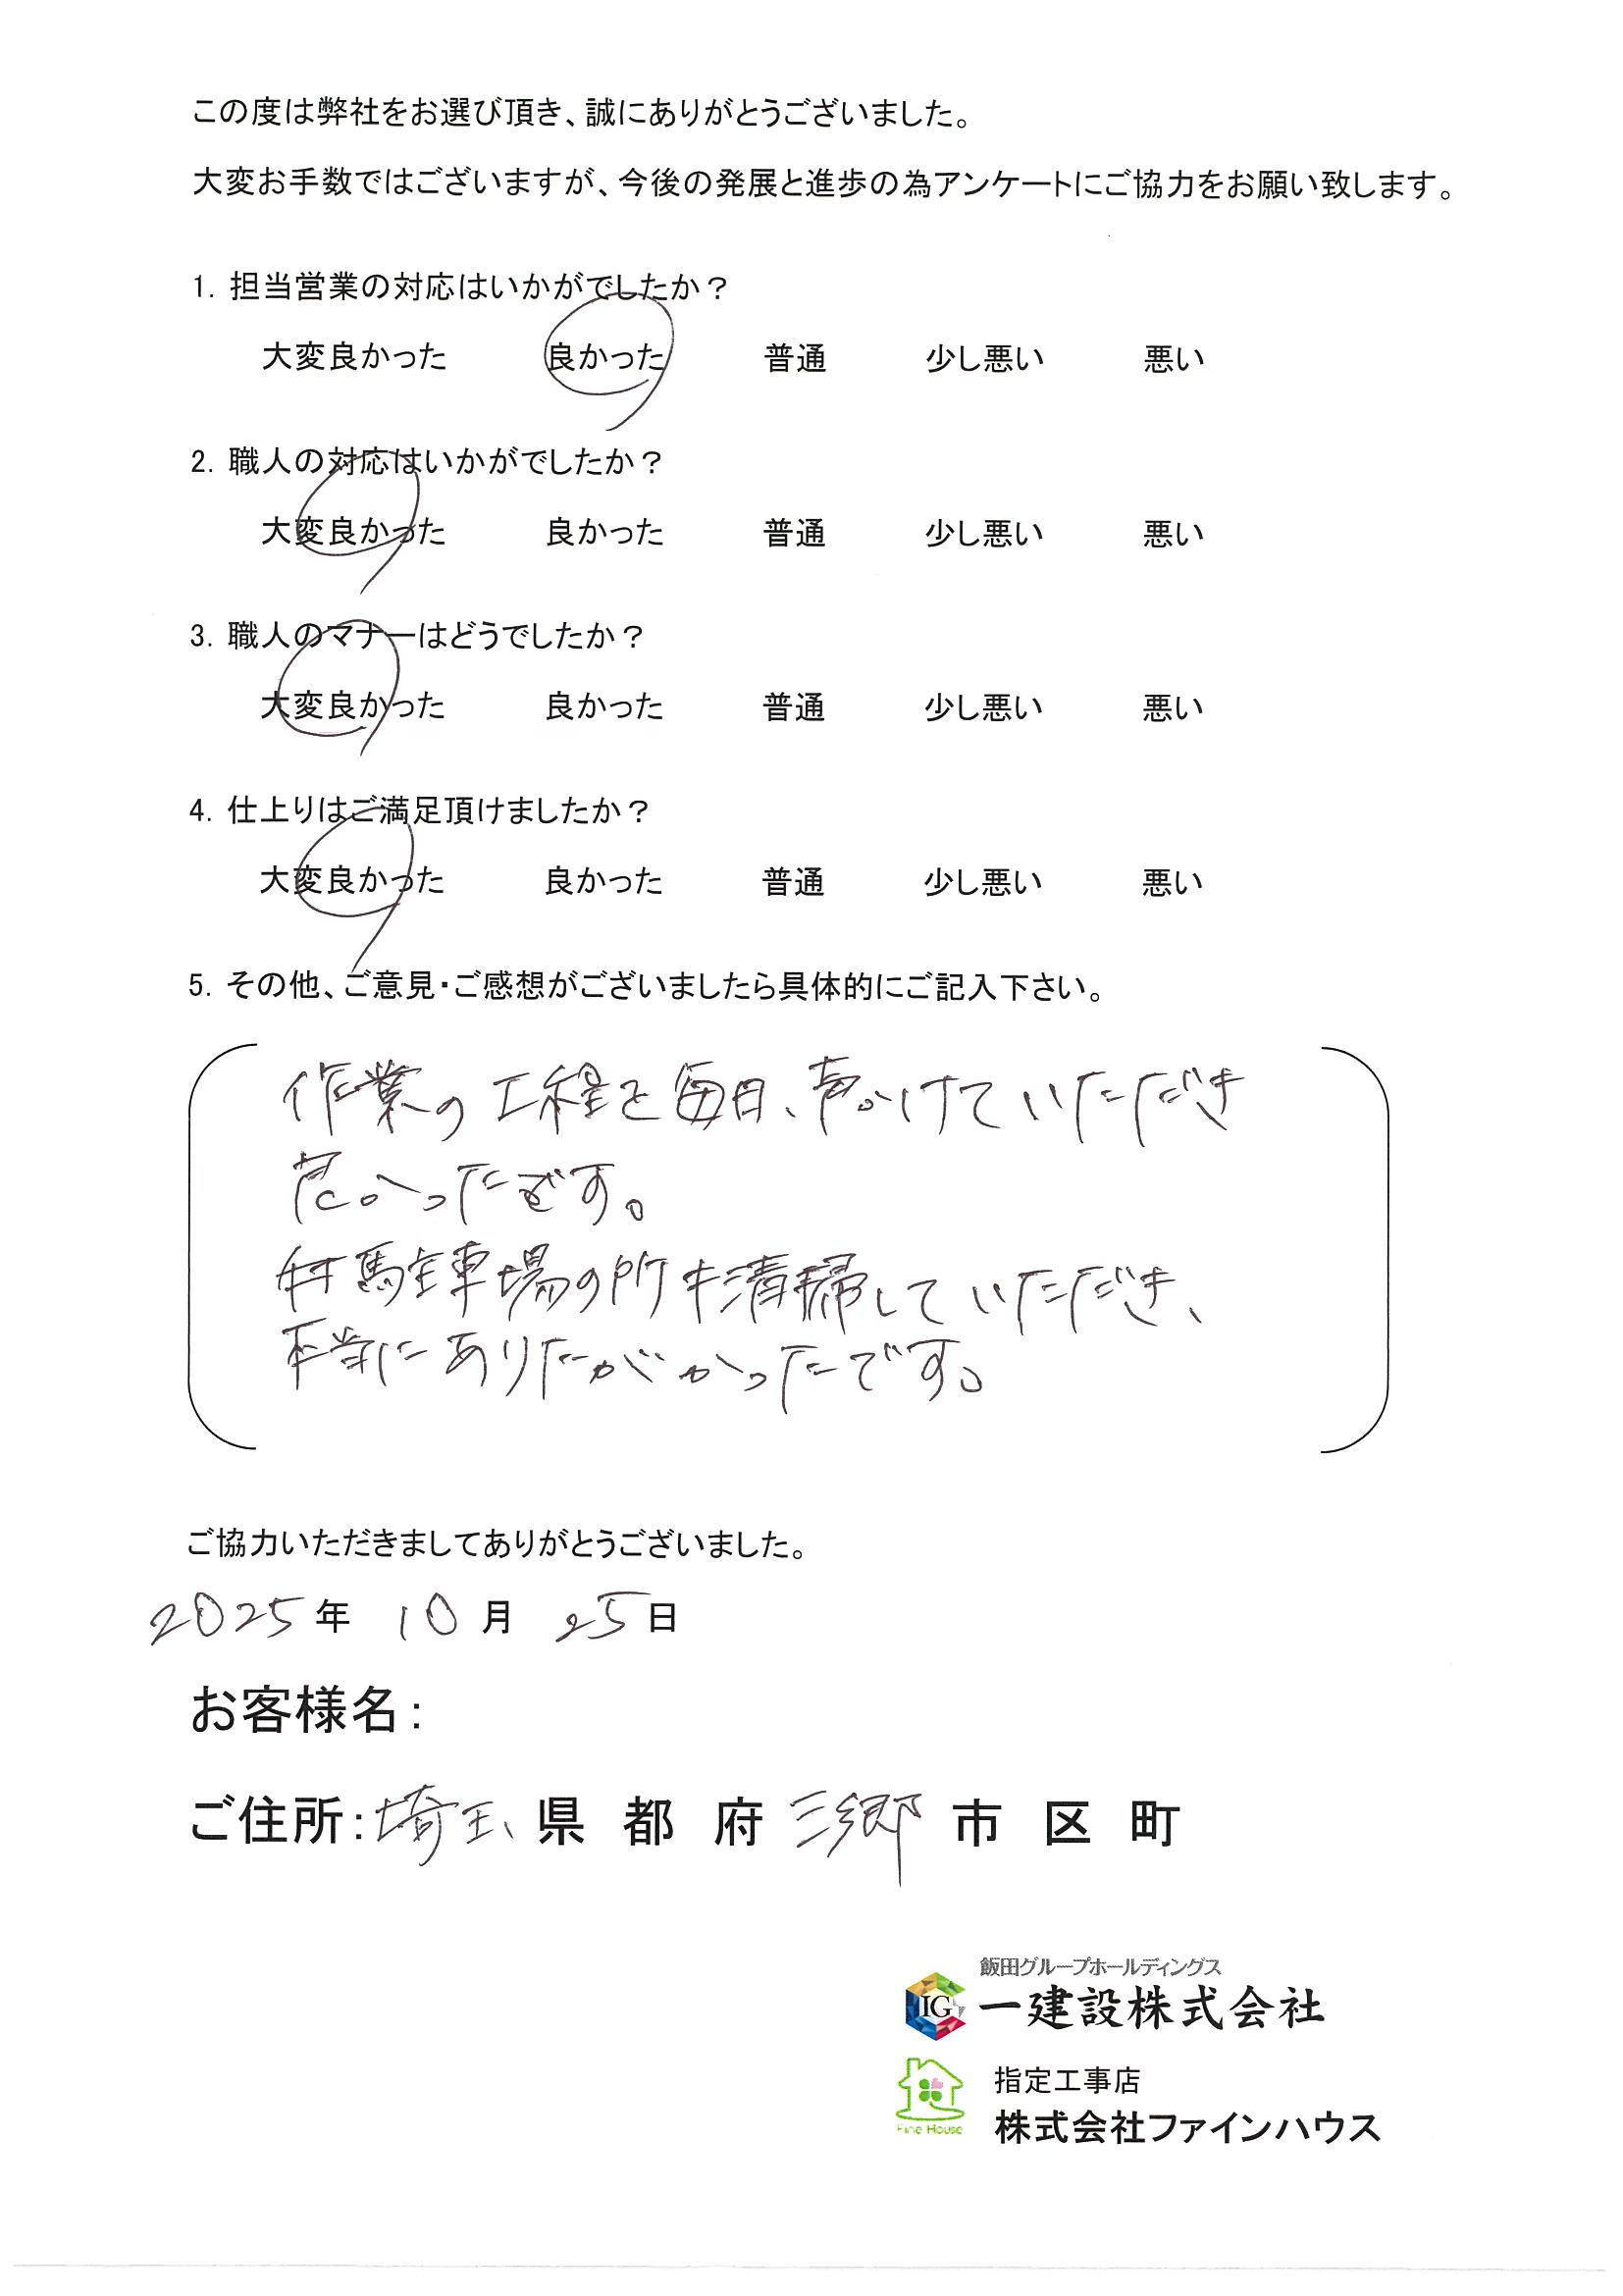 この度は弊社をお選び頂き、誠にありがとうございました。
大変お手数ではございますが、今後の発展と進歩の為アンケートにご協力をお願い致します。
1. 担当営業の対応はいかがでしたか？
大変良かった 良かった 普通 少し悪い 悪い
2. 職人の対応はいかがでしたか？
大変良かった 良かった 普通 少し悪い 悪い
3. 職人のマナーはどうでしたか？
大変良かった 良かった 普通 少し悪い 悪い
4. 仕上りはご満足頂けましたか？
大変良かった 良かった 普通 少し悪い 悪い
5. その他、ご意見・ご感想がございましたら具体的にご記入下さい。
作業の工程を毎日、声かけていただき
良かったです。
駐車場の所も清掃していただき、
本当にありたがかったです。
ご協力いただきましてありがとうございました。
2025年 10月 25日
お客様名：
ご住所：埼玉県 都 府 三郷市 区 町
飯田グループホールディングス
IG 一建設株式会社
指定工事店
Fine House 株式会社ファインハウス